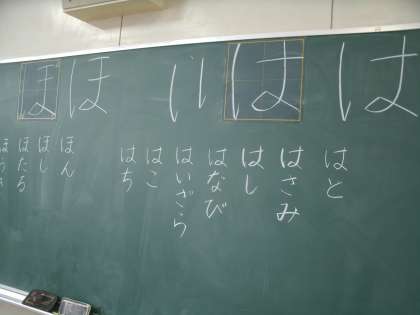 は
は
ほ
ほ
はと
はさみ
はし
はなび
はいざら
はこ
はち
ほん
ほし
ほたる